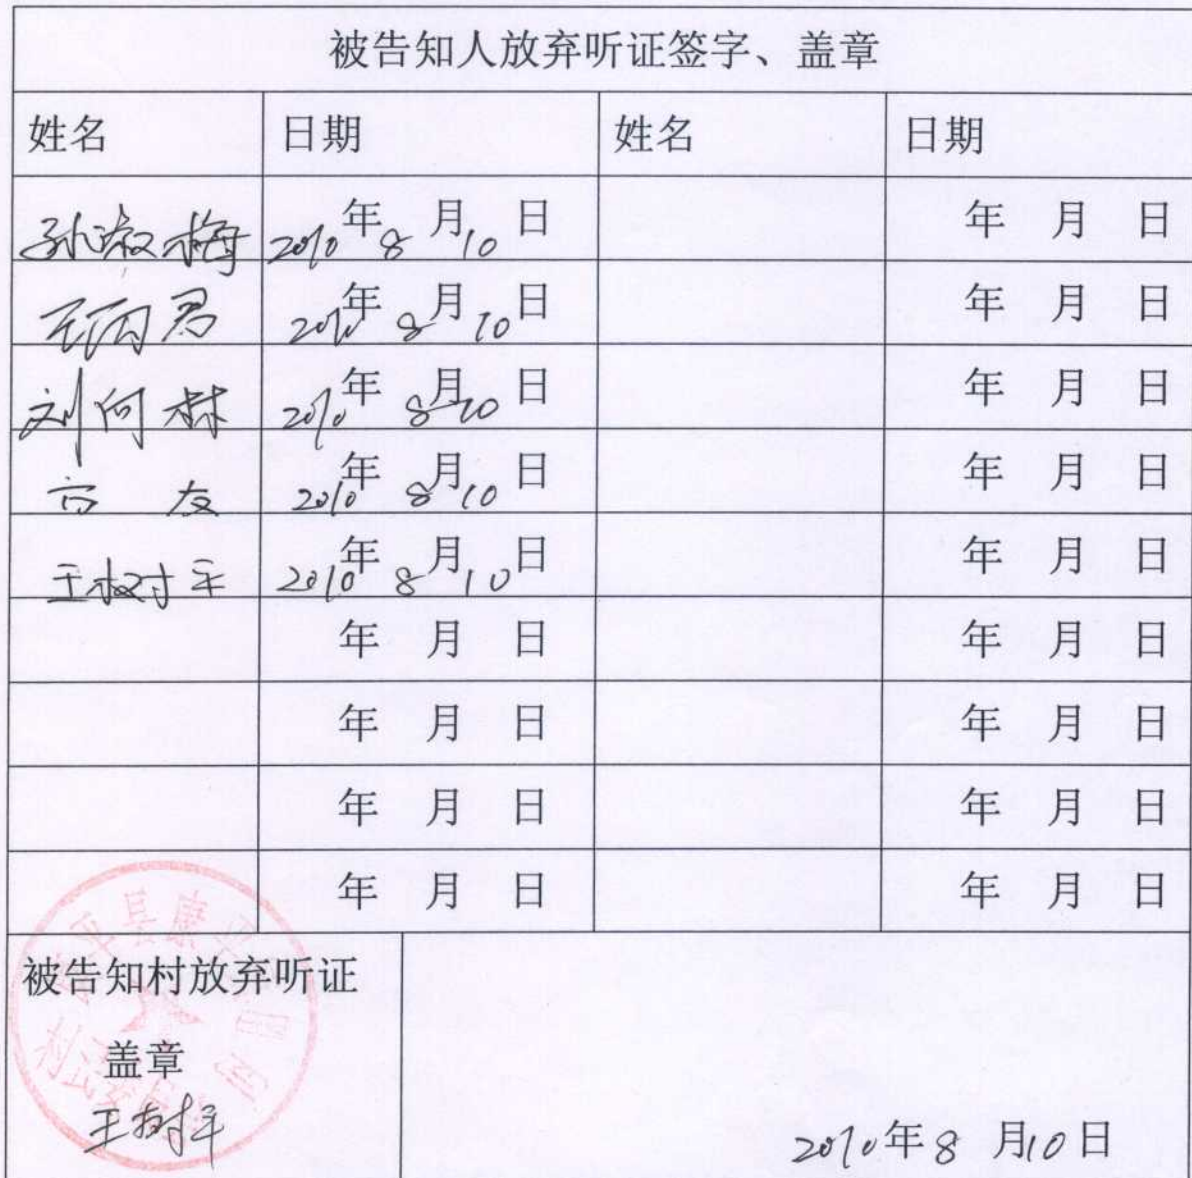 被告知人放弃听证签字、盖章
姓名 日期 姓名 日期
孙淑梅 2010年8月10日 年 月 日
王丙君 2010年8月10日 年 月 日
刘向林 2010年8月10日 年 月 日
友 2010年8月10日 年 月 日
王树平 2010年8月10日 年 月 日
年 月 日 年 月 日
年 月 日 年 月 日
年 月 日 年 月 日
年 月 日 年 月 日
被告知村放弃听证
盖章
王树平
2010年8月10日